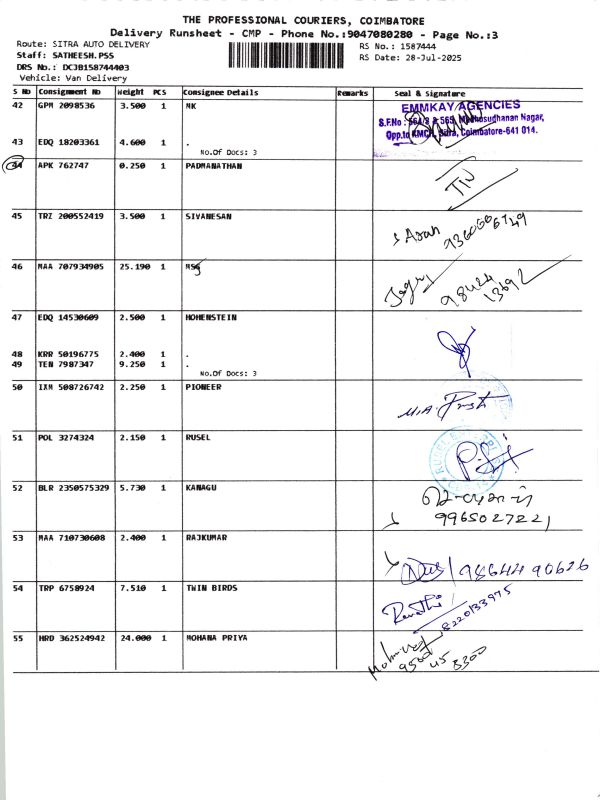 THE PROFESSIONAL COURIERS, COIMBATORE
Delivery Runsheet - CMP - Phone No.:9047080280 - Page No.:3
Route: SITRA AUTO DELIVERY
RS No.: 1587444
Staff: SATHEESH.PSS
RS Date: 28-Jul-2025
DRS No.: DCJB158744403
Vehicle: Van Delivery
S No Consignment No Weight PCS Consignee Details Remarks Seal & Signature
42 GPM 2098536 3.500 1 MK
EMMKAY AGENCIES
S.F.No : 564/3 & 565, Madhusudhanan Nagar,
Opp.to KMCH, Sitra, Coimbatore-641 014.
43 EDQ 18203361 4.600 1 .
No.Of Docs: 3
44 APK 762747 0.250 1 PADMANATHAN
45 TRZ 200552419 3.500 1 SIVANESAN
46 MAA 707934905 25.190 1 MSG
98424
13692
47 EDQ 14530609 2.500 1 HOHENSTEIN
48 KRR 50196775 2.400 1 .
49 TEN 7987347 9.250 1 .
No.Of Docs: 3
50 IXM 508726742 2.250 1 PIONEER
51 POL 3274324 2.150 1 RUSEL
52 BLR 2350575329 5.730 1 KANAGU
9965027221
53 MAA 710730608 2.400 1 RAJKUMAR
9864490626
54 TRP 6758924 7.510 1 TWIN BIRDS
Revathi
8220133975
55 HRD 362524942 24.000 1 MOHANA PRIYA